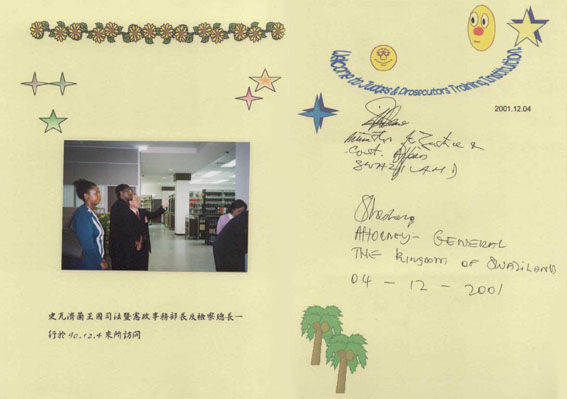 史瓦濟蘭王國司法暨憲政事務部長及檢察總長一
行於90.12.4來所訪問
Welcome to Judges & Prosecutors Training Institution
2001.12.04
Minister for Justice &
Const. Affairs
SWAZILAND
ATTORNEY - GENERAL
THE KINGDOM OF SWAZILAND
04 - 12 - 2001